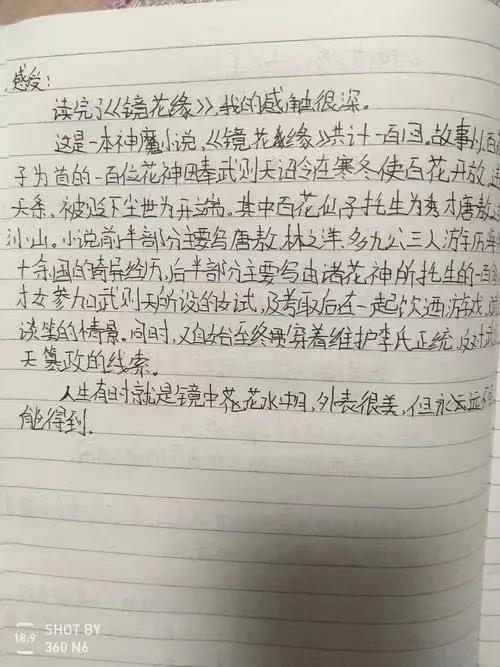 感受：
读完了《镜花缘》，我的感触很深。
这是一本神魔小说，《镜花缘》共计一百回。故事以百
子为首的一百位花神因奉武则天诏令在寒冬使百花开放，
天条，被贬下尘世为开端。其中百花仙子托生为秀才唐敖
小山。小说前半部分主要写唐敖、林之洋、多九公三人游历
十余国的奇异经历，后半部分主要写由诸花神所托生的一百
才女参加武则天所设的女试，及考取后在一起饮酒游戏，
谈笑的情景。同时，又始至终贯穿着维护李氏正统，反对武
天篡政的线索。
人生有时就是镜中花水中月，外表很美，但永远
能得到.
18:9
SHOT BY
360 N6